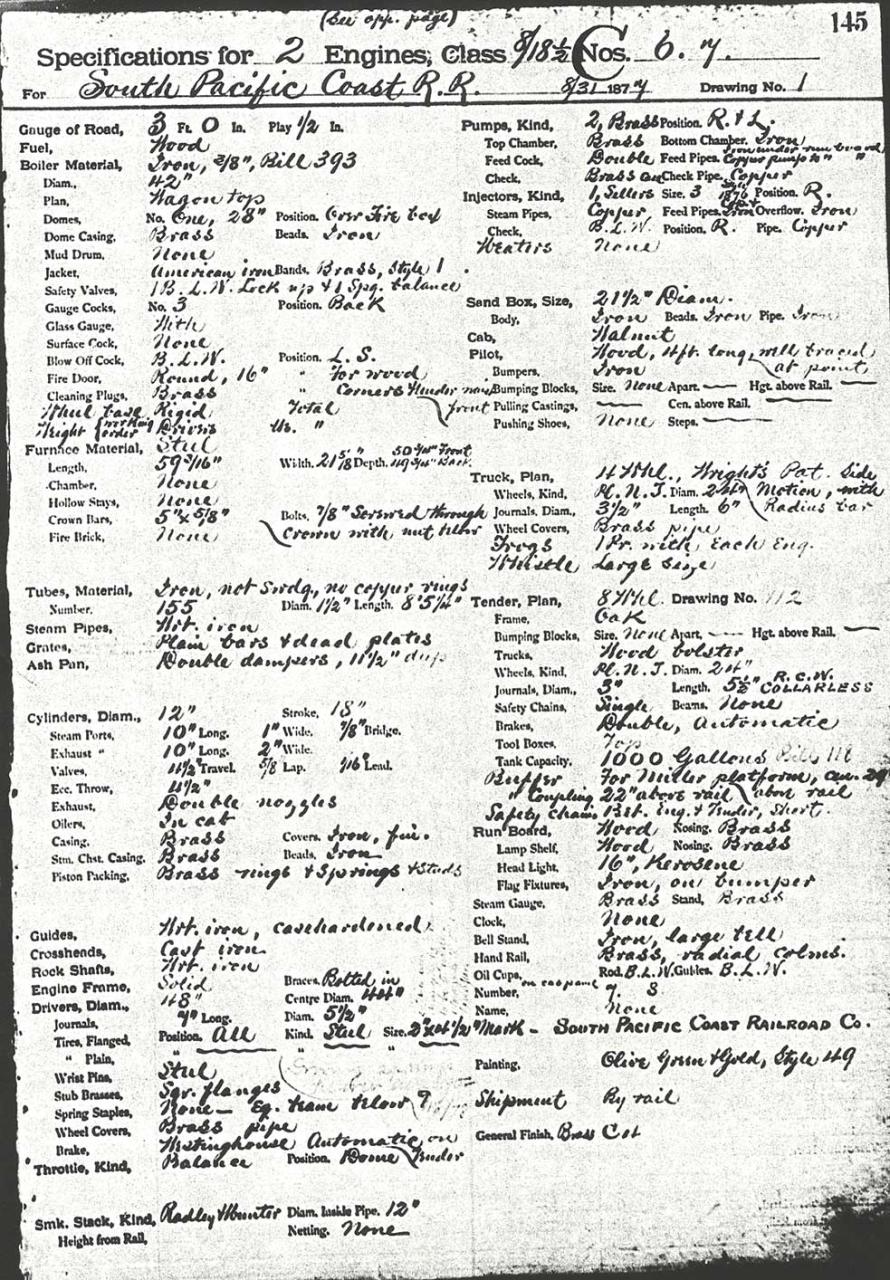 (See opp. page)
145
Specifications for 2 Engines, Class 8/18½ C Nos. 6. 7.
For South Pacific Coast R.R. 8/31 1877 Drawing No. 1
Gauge of Road, 3 Ft. 0 In. Play 1/2 In.
Fuel, Wood
Boiler Material, Iron, 3/8", Bill 393
Diam., 42"
Plan, Wagon top
Domes, No. One, 28" Position. Over Fire box
Dome Casing, Brass Beads. Iron
Mud Drum, None
Jacket, American iron Bands. Brass, Style 1
Safety Valves, 1 B.L.W. Lock up & 1 Spg. balance
Gauge Cocks, No. 3 Position. Back
Glass Gauge, With
Surface Cock, None
Blow Off Cock, B.L.W. Position. L.S.
Fire Door, Round, 16" " For wood
Cleaning Plugs, Brass " Corners
Wheel base Rigid Total
Weight { working order Drivers "
Furnace Material, Steel
Length, 59 3/16" Width. 21 5/8" Depth. 50 3/4" Front 49 3/4" Back.
Chamber, None
Hollow Stays, None
Crown Bars, 5" x 5/8" Bolts. 7/8" Screwed through
Fire Brick, None Crown with nut below
Tubes, Material, Iron, not Swdg., no copper rings
Number, 155 Diam. 1 1/2" Length. 8' 5 1/4"
Steam Pipes, Wrt. iron
Grates, Plain bars & dead plates
Ash Pan, Double dampers, 11 1/2" deep
Cylinders, Diam., 12" Stroke, 18"
Steam Ports, 10" Long. 1" Wide. 7/8" Bridge.
Exhaust " 10" Long. 2" Wide.
Valves, 4 1/2" Travel. 5/8 Lap. 1/16" Lead.
Ecc. Throw, 4 1/2"
Exhaust, Double nozzles
Oilers, In cab
Casing, Brass Covers. Iron, fin.
Stm. Chst. Casing. Brass Beads. Iron
Piston Packing, Brass rings & Springs & Studs
Guides, Wrt. iron, casehardened
Crossheads, Cast iron
Rock Shafts, Wrt. iron
Engine Frame, Solid Braces. Bolted in
Drivers, Diam., 48" Centre Diam. 44"
Journals, 7" Long. Diam. 5 1/2"
Tires, Flanged, Position. All Kind. Steel Size.
" Plain, " " "
Wrist Pins, Steel
Stub Brasses, Sqr. flanges
Spring Staples, None — Eq. beam below
Wheel Covers, Brass pipe
Brake, Westinghouse Automatic on Tender
Throttle, Kind, Balance Position. Dome
Smk. Stack, Kind, Radley & Hunter Diam. Inside Pipe. 12"
Height from Rail, Netting. None
Pumps, Kind, 2, Brass Position. R. & L.
Top Chamber, Brass Bottom Chamber. Iron
Feed Cock, Double Feed Pipes. Iron under run board Copper pump to " "
Check, Brass Check Pipe. Copper
Injectors, Kind, 1, Sellers Size. 3 Style 1876 Position. R.
Steam Pipes, Copper Feed Pipes. Iron Overflow. Iron
Check, B.L.W. Position. R. Pipe. Copper
Heaters None
Sand Box, Size, 21 1/2" Diam.
Body, Iron Beads. Iron Pipe. Iron
Cab, Walnut
Pilot, Wood, 4 ft. long, well braced at point
Bumpers, Iron
Bumping Blocks, Size. None Apart. — Hgt. above Rail. —
Pulling Castings, — Cen. above Rail. —
Pushing Shoes, None Steps. —
Truck, Plan, 4 Whl., Wright's Pat. Side
Wheels, Kind, Pl. N.J. Diam. 24" Motion, with
Journals, Diam., 3 1/2" Length. 6" Radius bar
Wheel Covers, Brass pipe
Frogs 1 Pr. with Each Eng.
Whistle Large Size
Tender, Plan, 8 Whl. Drawing No. 112
Frame, Oak
Bumping Blocks, Size. None Apart. — Hgt. above Rail. —
Trucks, Wood bolster
Wheels, Kind, Pl. N.J. Diam. 24"
Journals, Diam., 3" Length. 5 1/2" R.C.W. COLLARLESS
Safety Chains, Single Beams. None
Brakes, Double, Automatic
Tool Boxes, Top
Tank Capacity, 1000 Gallons Bill 118
Buffer For Miller platform, cen. 29"
" Coupling 22" above rail above rail
Safety chains Bet. Eng. & Tender, Short.
Run Board, Wood Nosing. Brass
Lamp Shelf, Wood Nosing. Brass
Head Light, 16", Kerosene
Flag Fixtures, Iron, on bumper
Steam Gauge, Brass Stand, Brass
Clock, None
Bell Stand, Iron, large bell
Hand Rail, Brass, radial colms.
Oil Cups, Rod. B.L.W. Guides. B.L.W.
Number, 7. 8
Name, None
Mark — SOUTH PACIFIC COAST RAILROAD CO.
Painting, Olive Green & Gold, Style 49
Shipment By rail
General Finish, Brass